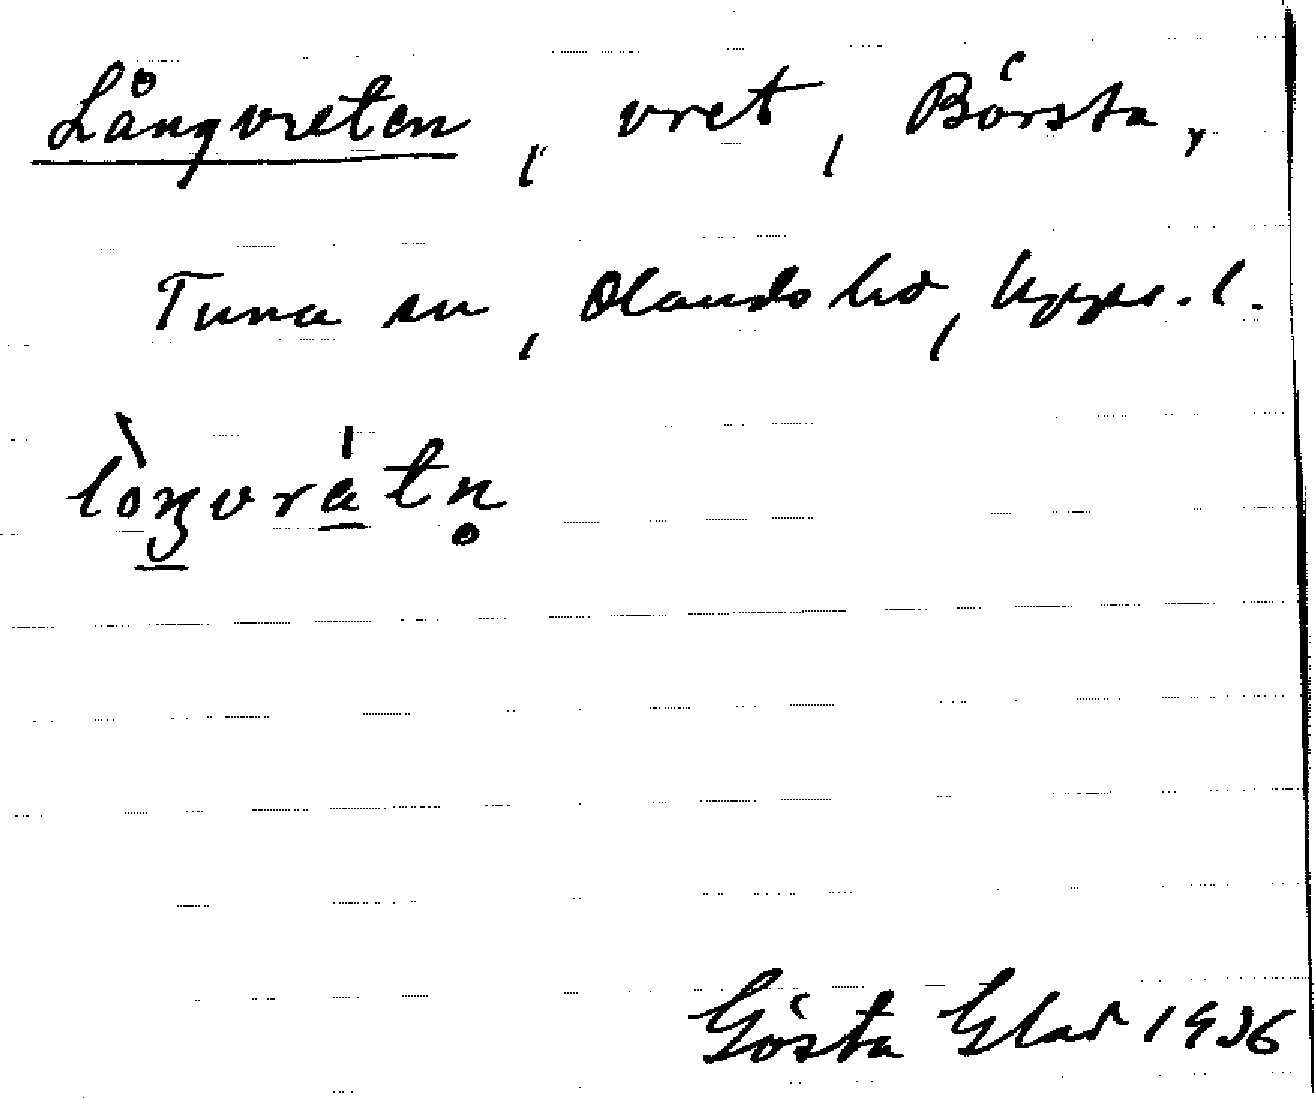 Långvreten, vret, Börsta,
Tuna sn, Olands hd, Upps. l.
lòŋvrátn̥
Gösta Elad 1936